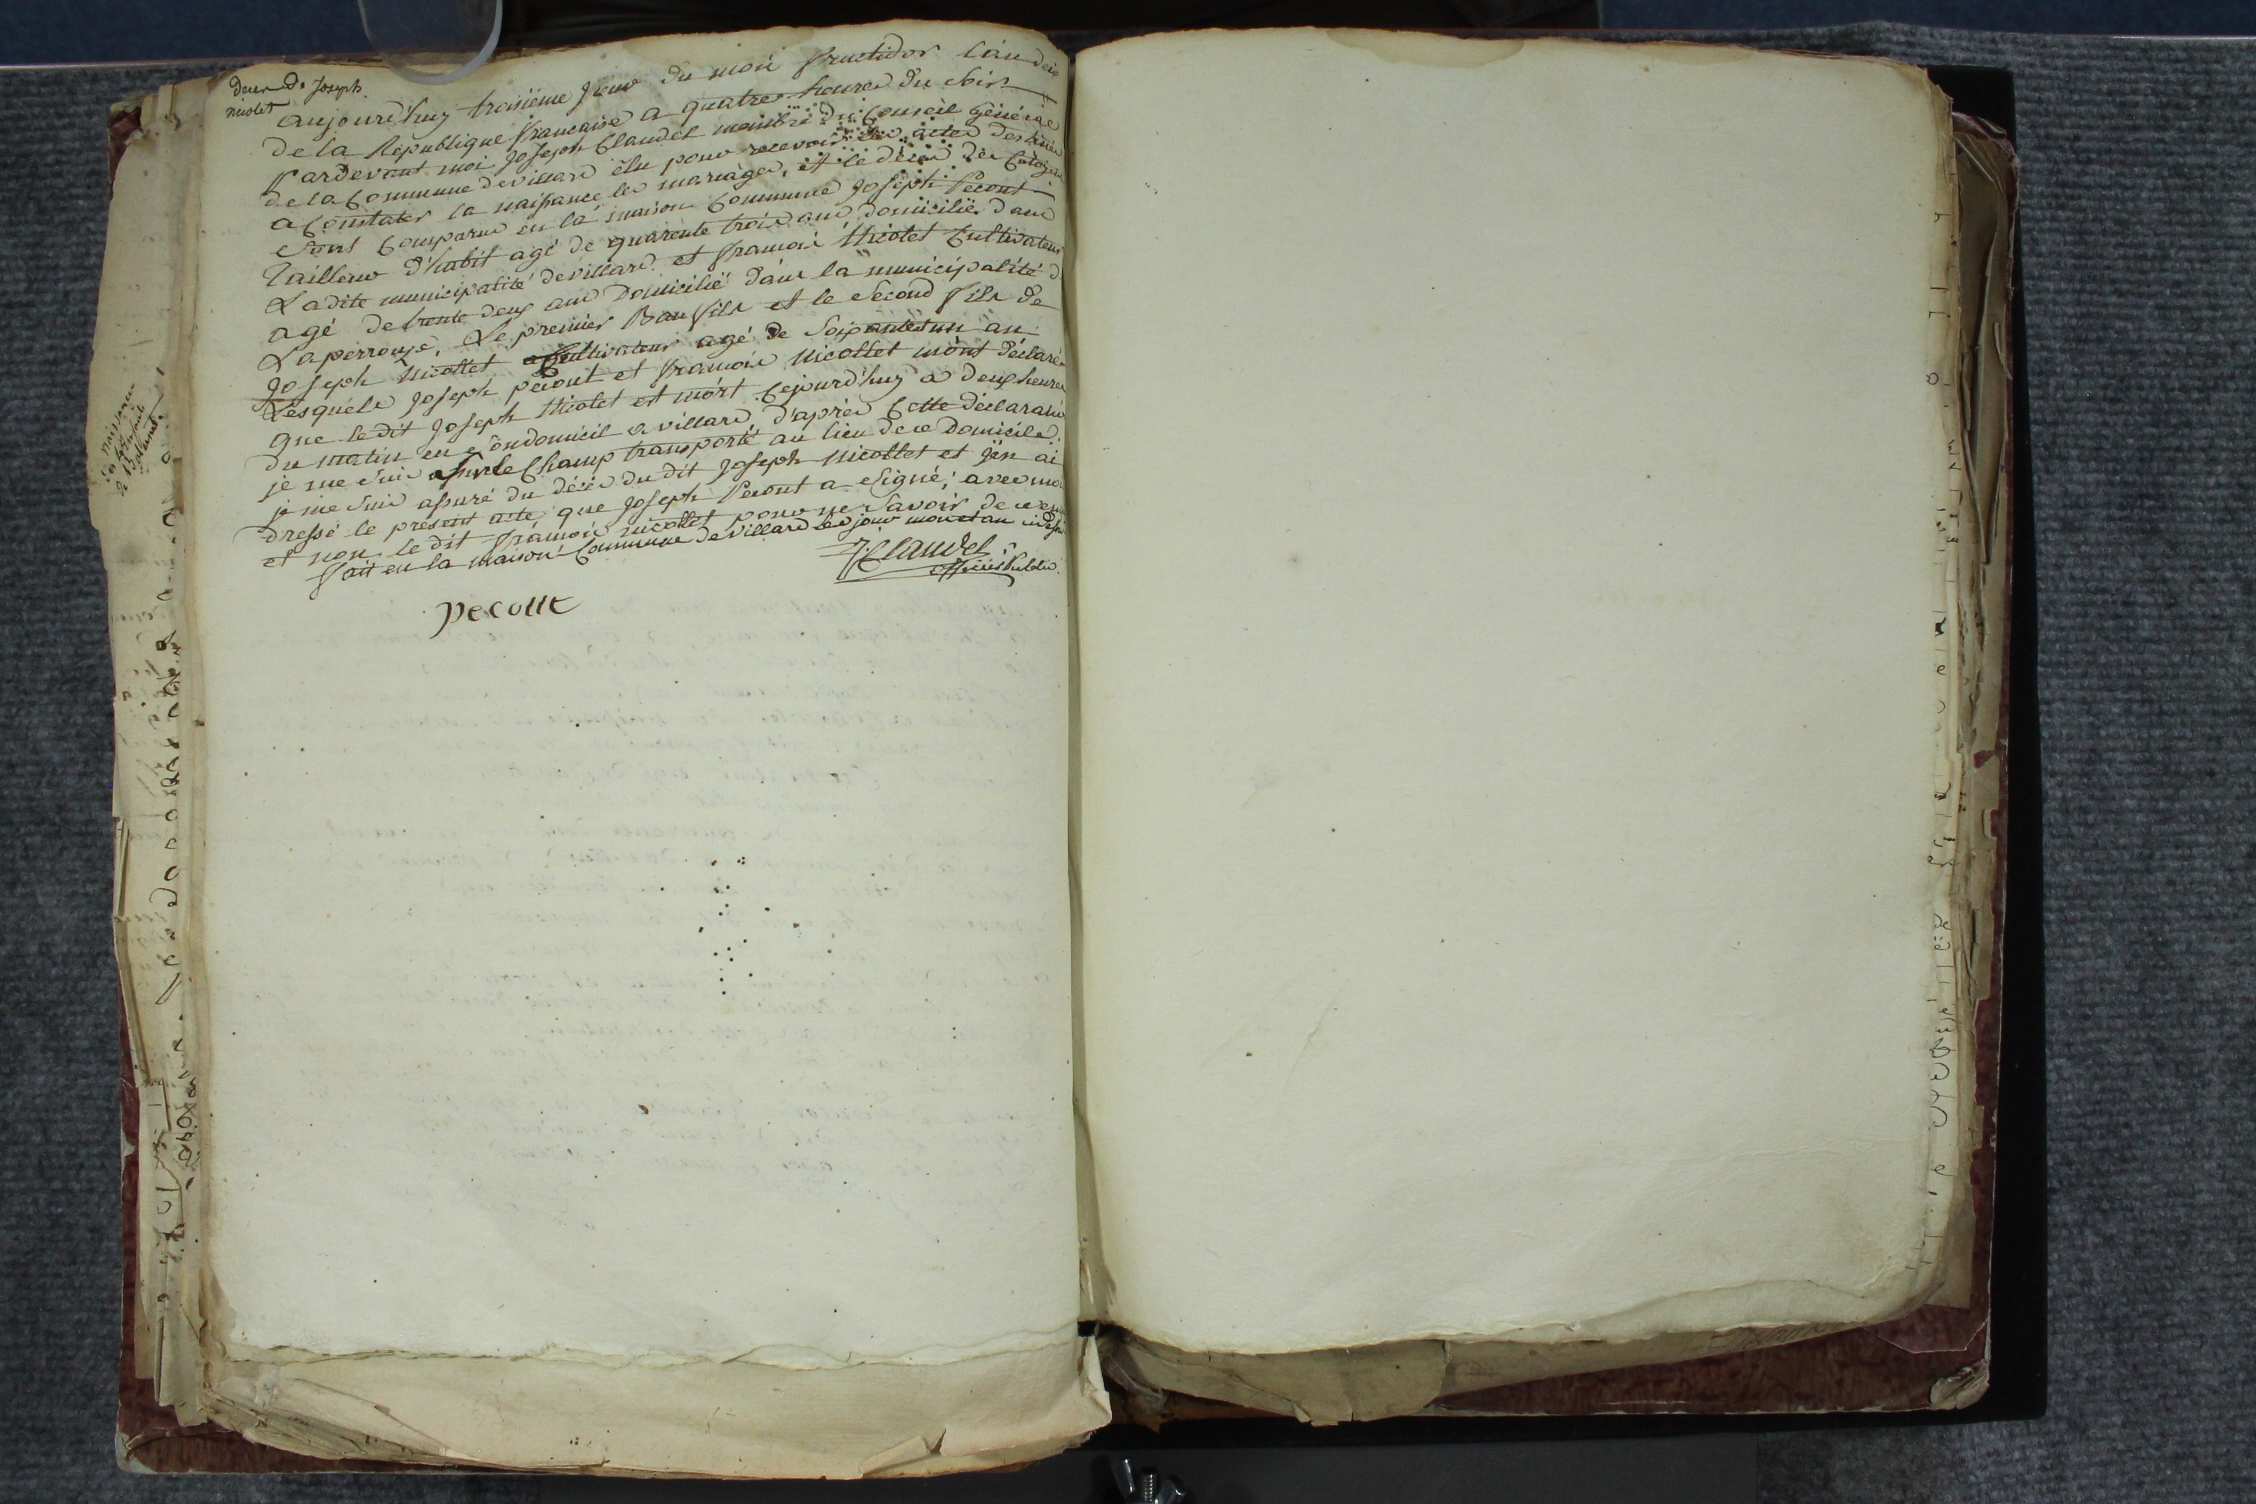 deces de Joseph
nicolet
aujourd'huy troisieme jour du mois fructidor l'an deux
de la Republique francaise a quatres heures du soir
Pardevant moi Joseph Claudel membre du Conseil Général
de la Commune de villard élu pour recevoir les actes destinés
a Constater la naissance les mariages, et le décès des Citoyens
sont Comparus en la maison Commune Joseph Pecout
Tailleur d'habit agé de quarente trois ans domicilié dans
La dite municipalité de villard et francois Nicolet Cultivateur
agé de trente deux ans Domicilié dans la municipalité d
Laperrouse, Le premier Beaufils et le second fils de
Joseph Nicollet Cultivateur agé de soixante et un an
Lesquels Joseph pecout et francois Nicollet m'ont déclaré
que le dit Joseph Nicolet est mort cejourd'huy a deux heures
du matin en son domicil a villard, d'après Cette déclaration
je me suis sur le Champ transporté au lieu de ce Domicile,
je me suis assuré du décès du dit Joseph Nicollet et j'en ai
dressé le présent acte que Joseph Pecout a signé, avec moi
et non le dit francois nicollet pour ne savoir de ce enquis
fait en la maison Commune de villard les jour mois et an
J. Claudel
officier Public
pecout
naissance